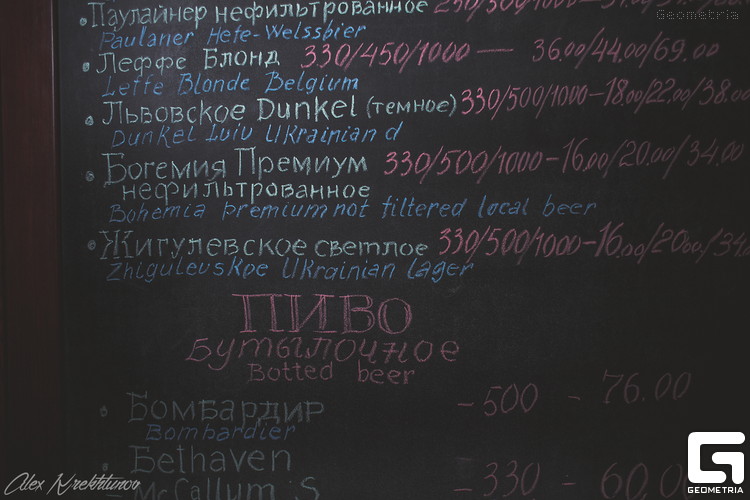 Паулайнер нефильтрованное
Paulaner Hefe-Weissbier
Леффе Блонд 330/450/1000 — 36.00/44.00/69.00
Leffe Blonde Belgium
Львовское Dunkel (темное) 330/500/1000-18.00/22.00/38.00
Dunkel Lviv Ukrainian d
Богемия Премиум 330/500/1000-16.00/20.00/34.00
нефильтрованное
Bohemia premium not filtered local beer
Жигулевское светлое 330/500/1000-16.00/20.00/34.
Zhigulevskoe Ukrainian lager
ПИВО
Бутылочное
Botted beer
Бомбардир - 500 - 76.00
Bombardier
Bethaven
McCallum's - 330 - 60.00
Geometria
GEOMETRIA